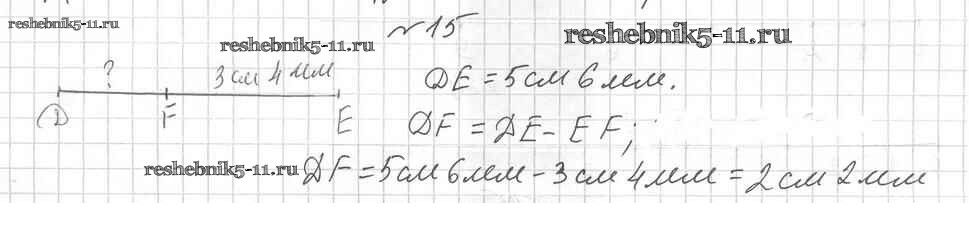 reshebnik5-11.ru
№15
reshebnik5-11.ru
reshebnik5-11.ru
? 3 см 4 мм
D F E
DE = 5 см 6 мм.
DF = DE - EF;
reshebnik5-11.ru
DF = 5 см 6 мм - 3 см 4 мм = 2 см 2 мм